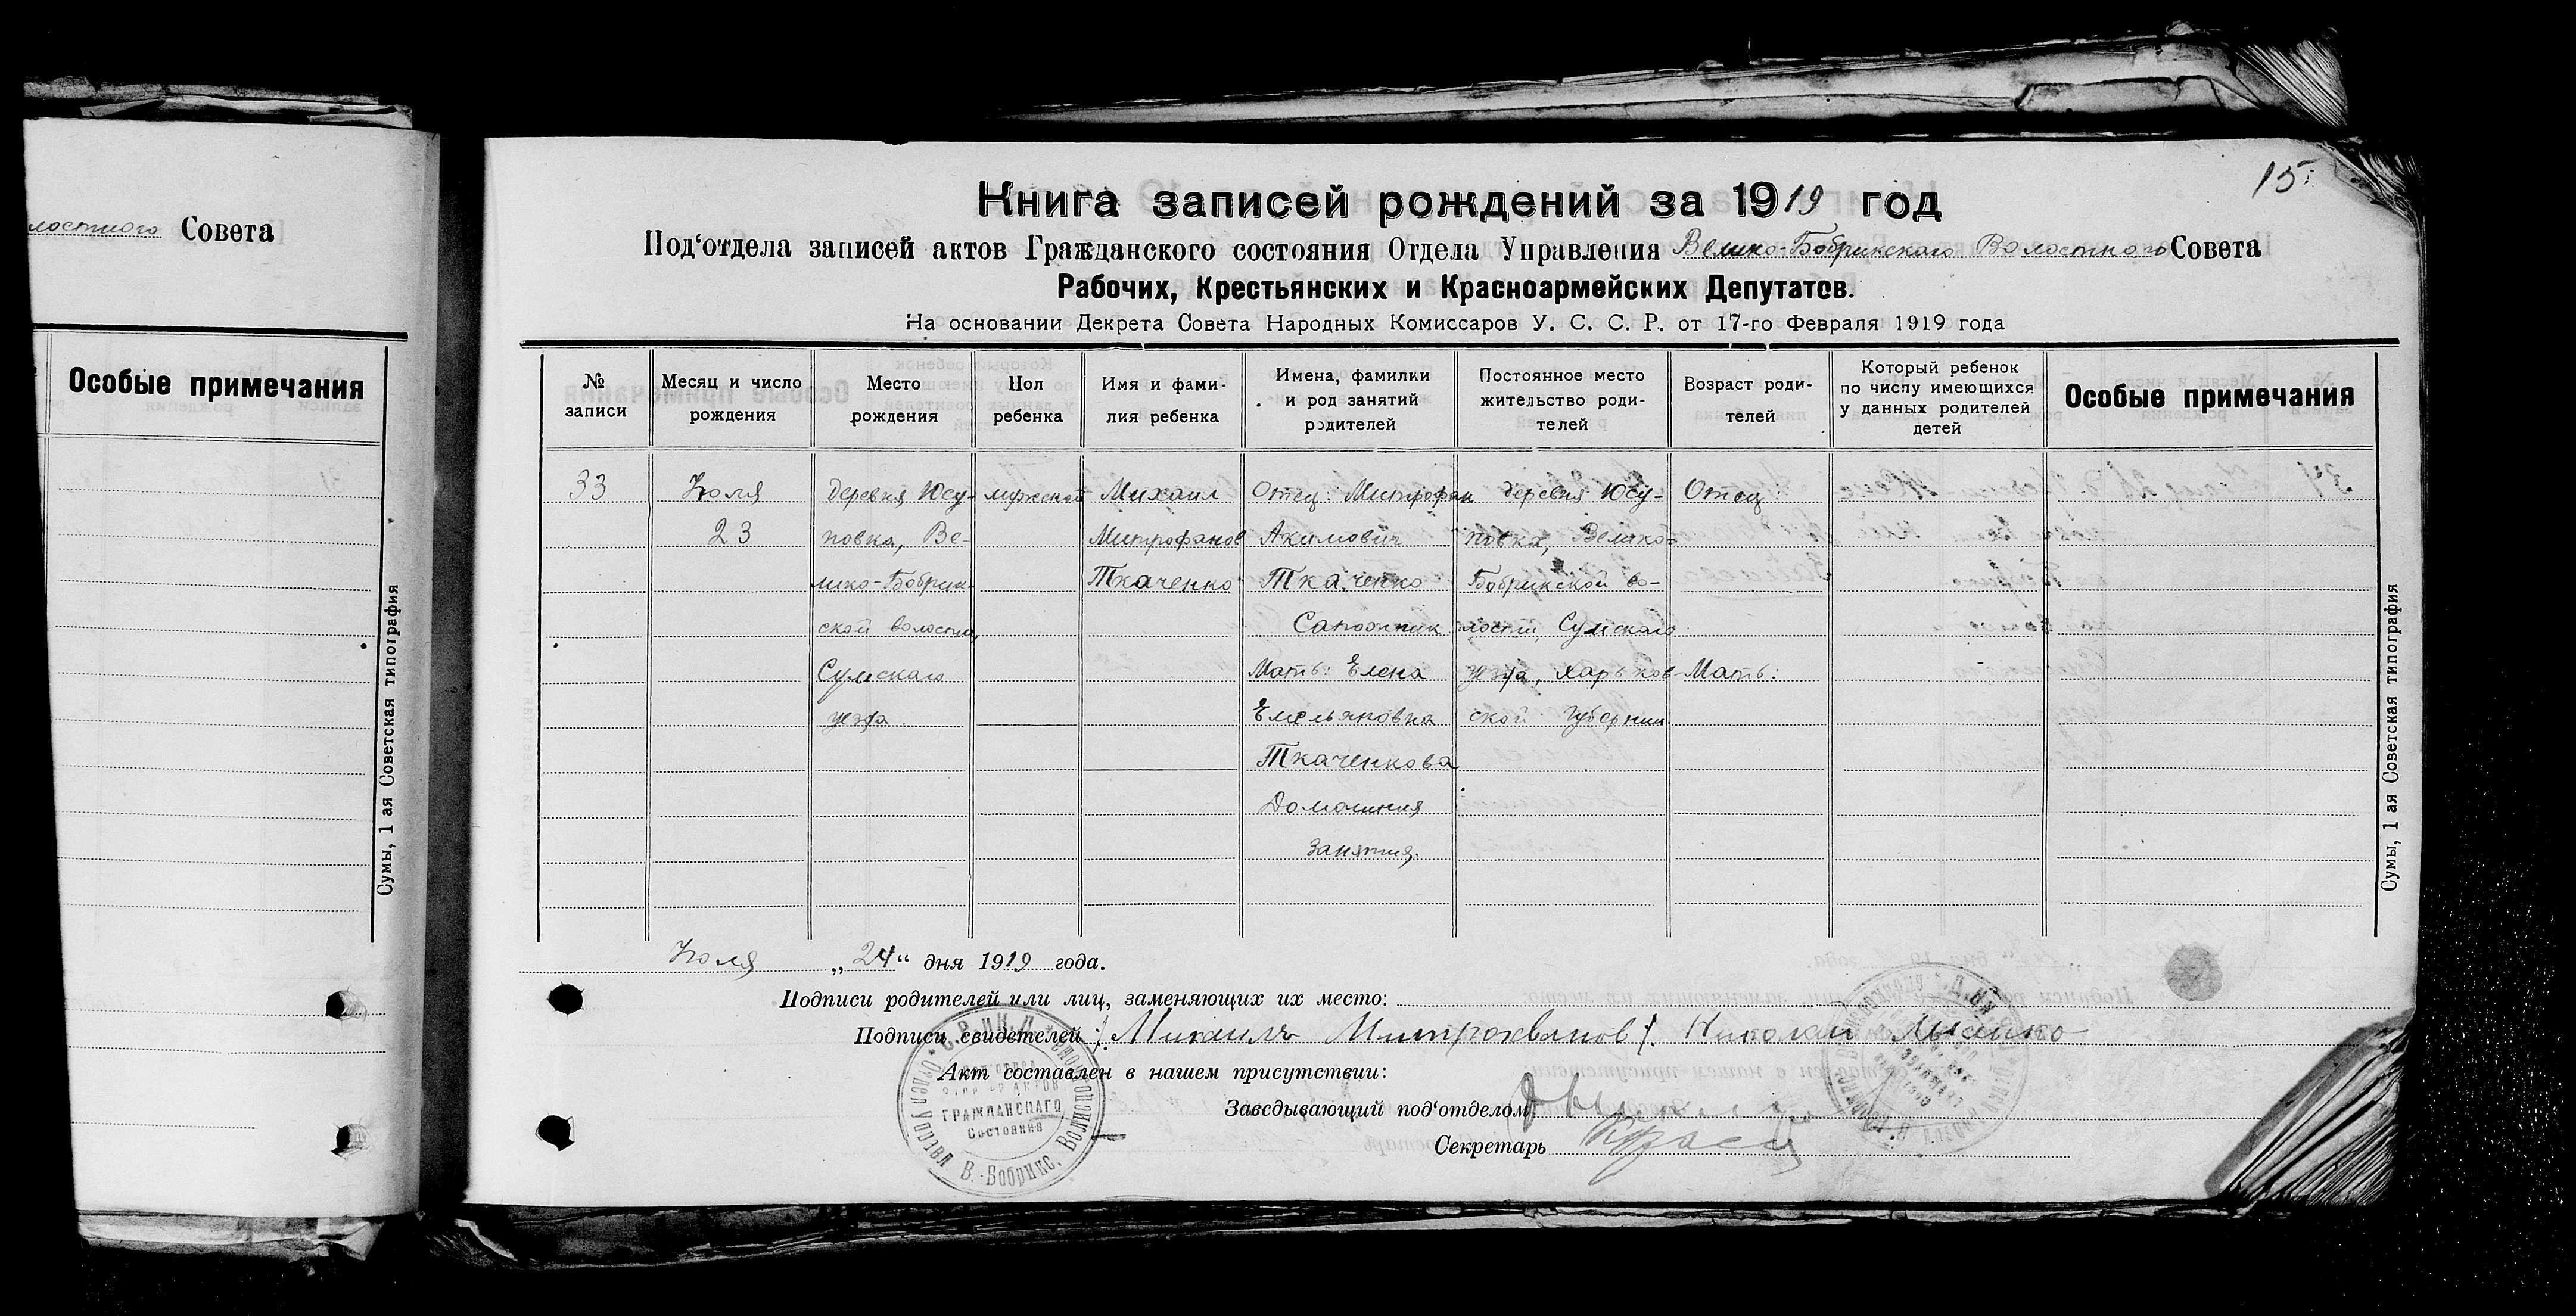 лостного Совета
Особые примечания
Сумы, 1 ая Советская типография
15.
Книга записей рождений за 1919 год
Под‘отдела записей актов Гражданского состояния Отдела Управления Велико-Бобрикского Волостного Совета
Рабочих, Крестьянских и Красноармейских Депутатов.
На основании Декрета Совета Народных Комиссаров У. С. С. Р. от 17-го Февраля 1919 года
№ записи
Месяц и число рождения
Место рождения
Пол ребенка
Имя и фами-
лия ребенка
Имена, фамилии
и род занятий
родителей
Постоянное место
жительство роди-
телей
Возраст роди-
телей
Который ребенок
по числу имеющихся
у данных родителей
детей
Особые примечания
33
Июля
23
деревня Юсу-
повка, Ве-
лико-Бобрик-
ской волости,
Сумского
уезда
мужской
Михаил
Митрофанов
Ткаченко
Отец: Митрофан
Акимович
Ткаченко
Сапожник
Мать: Елена
Емельяновна
Ткаченкова
Домашния
занятия.
деревня Юсу-
повка, Велико-
Бобрикской во-
лости, Сумского
уезда, Харьков-
ской Губернии.
Отец:
Мать:
Июля „24“ дня 1919 года.
Подписи родителей или лиц, заменяющих их место:
Подписи свидетелей: Михаилъ Митрохванов Николай
Акт составлен в нашем присутствии:
Заведывающий под‘отделом
Секретарь
ГРАЖДАНСКАГО
Состояния
Отдел Управл
В.-Бобрикс. Волисполкома
Сумы, 1 ая Советская типография